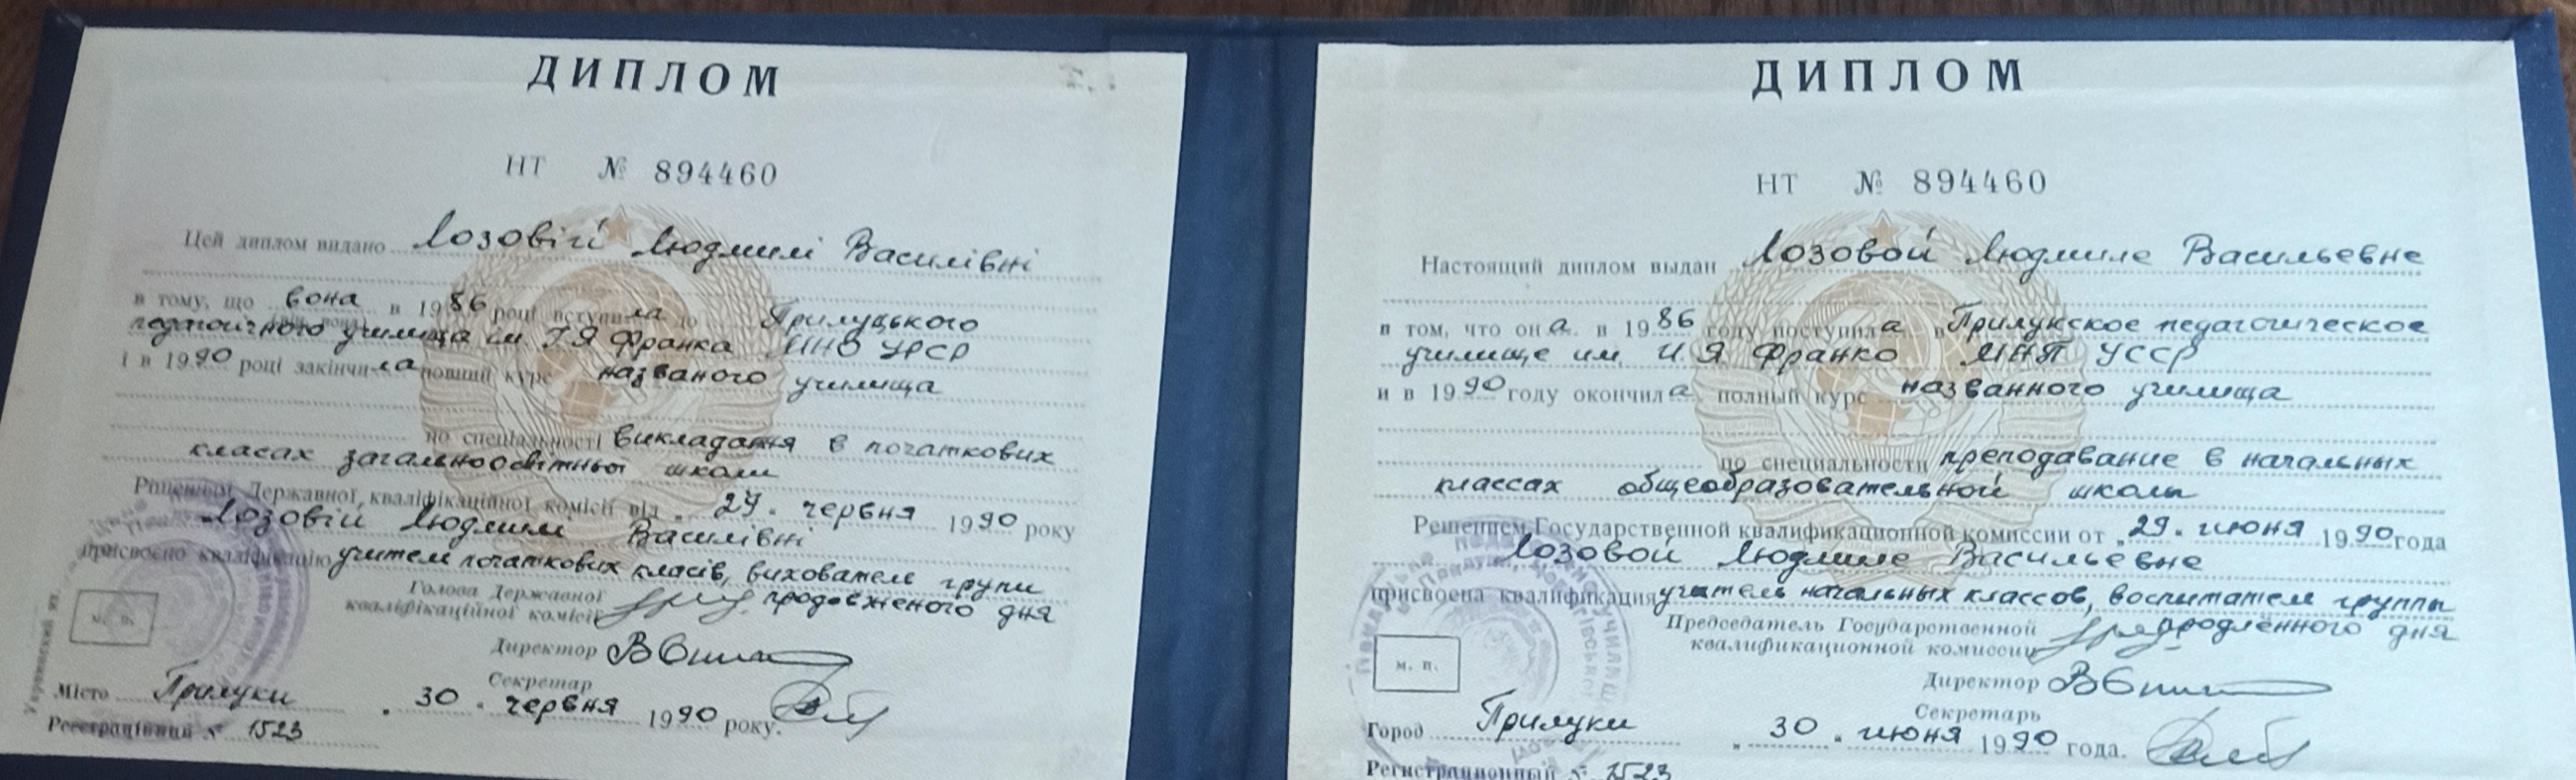 ДИПЛОМ
НТ № 894460
Цей диплом видано Лозовій Людмилі Василівні
в тому, що вона в 1986 році вступила до Прилуцького
педагогічного училища ім І Я Франка МНО УРСР
і в 1990 році закінчила повний курс названого училища
по спеціальності викладання в початкових
класах загальноосвітньої школи
Рішенням Державної кваліфікаційної комісії від 29 червня 1990 року
Лозовій Людмилі Василівні
присвоєно кваліфікацію учителя початкових класів, вихователя групи
продовженого дня
Голова Державної
кваліфікаційної комісії
Директор
Секретар
м. п.
Місто Прилуки 30 червня 1990 року.
Реєстраційний № 1523
Украинский яз.
ДИПЛОМ
НТ № 894460
Настоящий диплом выдан Лозовой Людмиле Васильевне
в том, что она в 1986 году поступила в Прилукское педагогическое
училище им. И. Я Франко МНП УССР
и в 1990 году окончила полный курс названного училища
по специальности преподавание в начальных
классах общеобразовательной школы
Решением Государственной квалификационной комиссии от „29" июня 1990 года
Лозовой Людмиле Васильевне
присвоена квалификация учитель начальных классов, воспитатель группы
продлённого дня
Председатель Государственной
квалификационной комиссии
Директор
Секретарь
м. п.
Город Прилуки „30" июня 1990 года.
Регистрационный № 1523